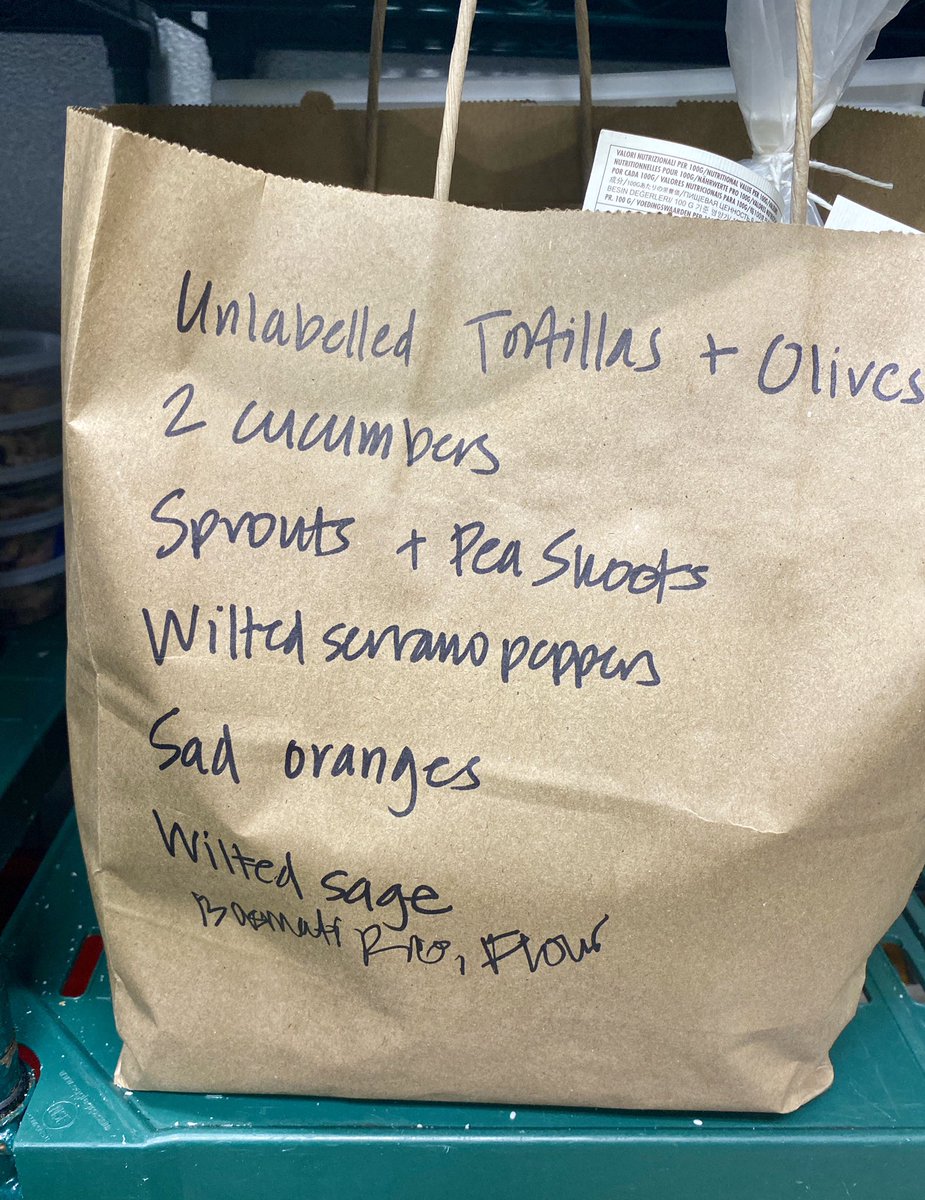 VALORI NUTRIZIONALI PER 100G/NUTRITIONAL VALUE PER 100G/
NUTRITIONNELLES POUR 100G/NÄHRWERTE PRO 100G/
POR CADA 100G/ VALORES NUTRICIONAIS PARA 100G/
BESIN DEĞERLERİ/ 100 G
PR. 100 G/ VOEDINGSWAARDEN PER
Unlabelled Tortillas + Olives
2 cucumbers
Sprouts + Pea Shoots
Wilted serrano peppers
Sad oranges
Wilted sage
Basmati Rice, Flour